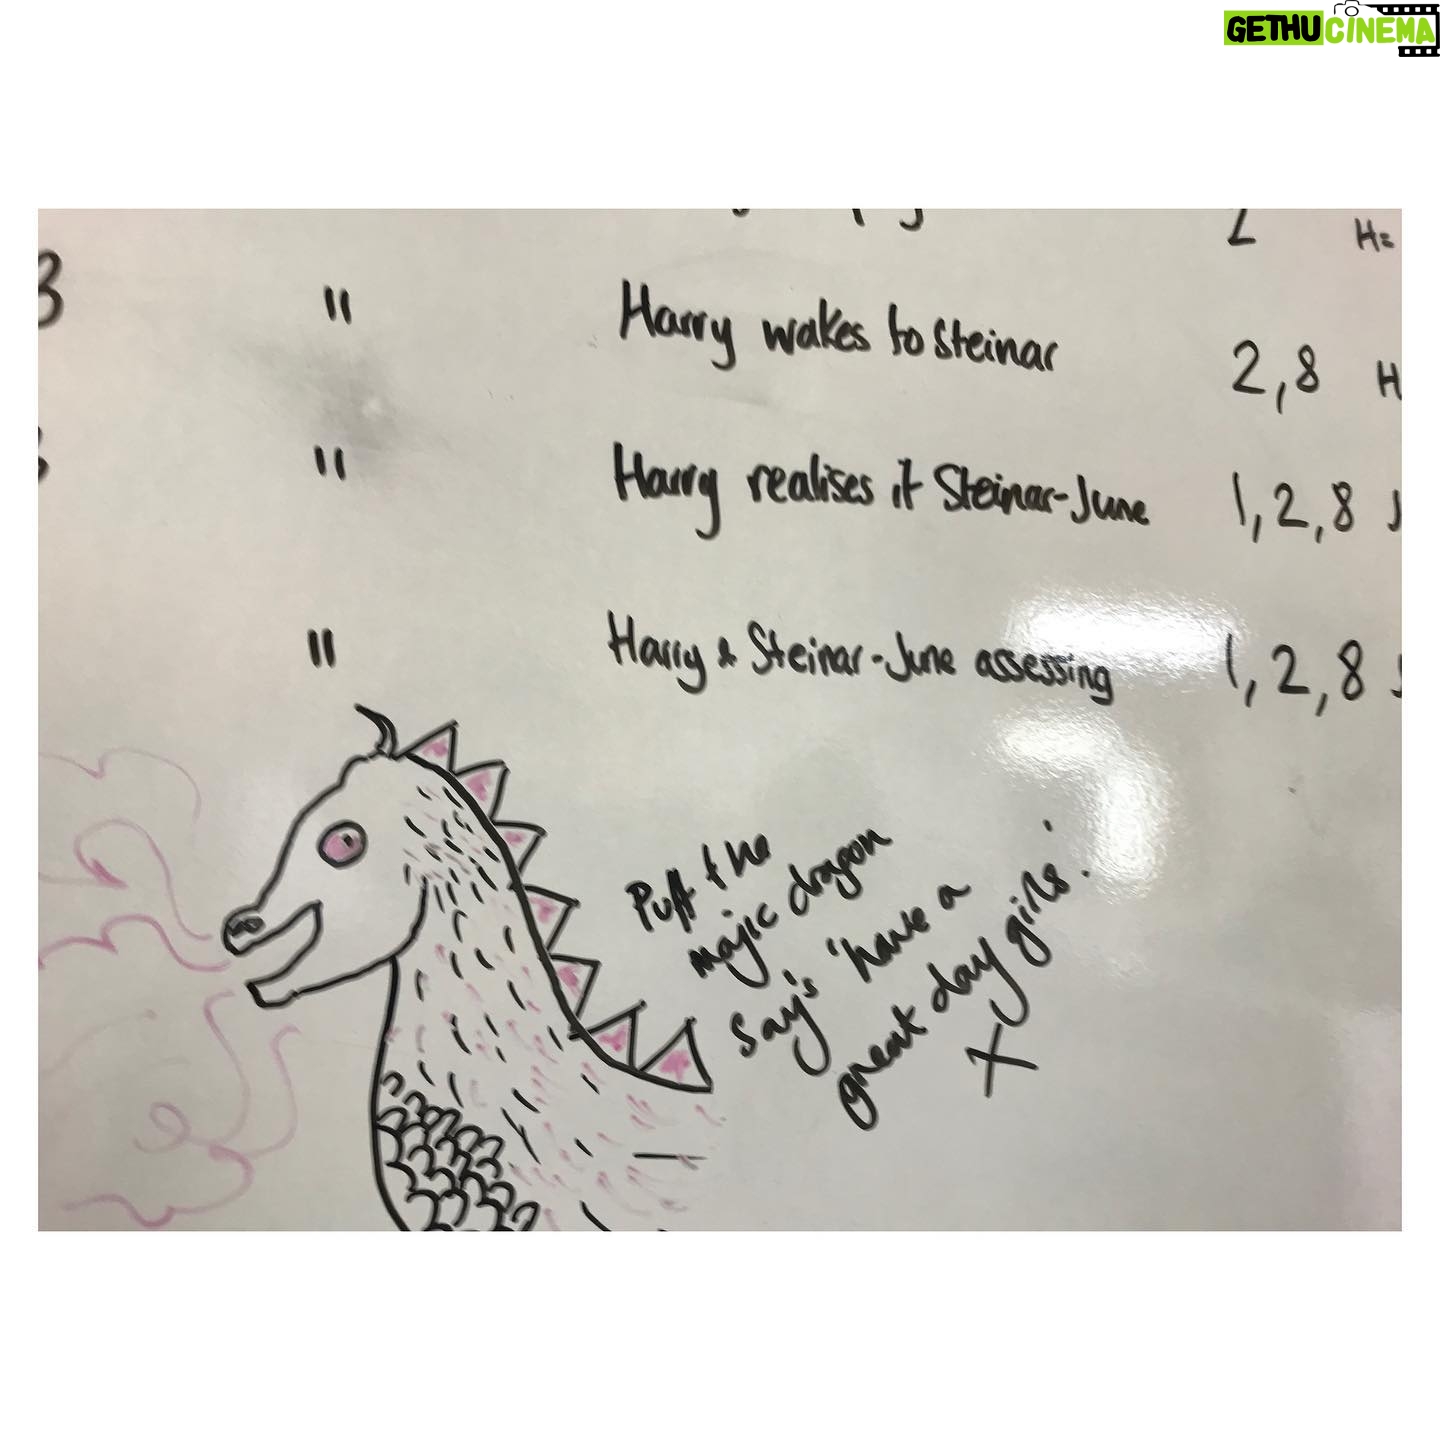 GETHUCINEMA
2 H=
3 " Harry wakes to Steinar 2,8 H
" Harry realises it Steinar-June 1,2,8 J
" Harry & Steinar-June assessing 1,2,8 J
Puff the
majic dragon
Say's 'have a
great day girls.'
X